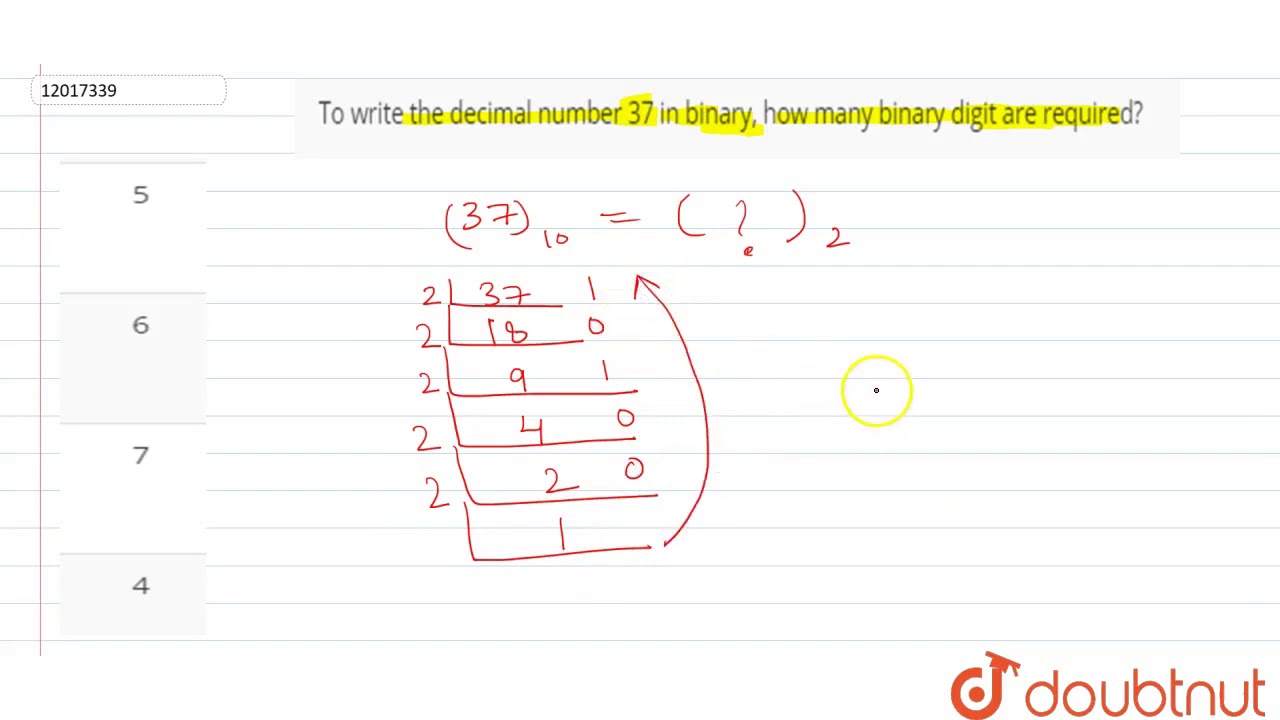 12017339
To write the decimal number 37 in binary, how many binary digit are required?
5
6
7
4
(37)10 = ( ? )2
2 37 1
2 18 0
2 9 1
2 4 0
2 2 0
1
doubtnut